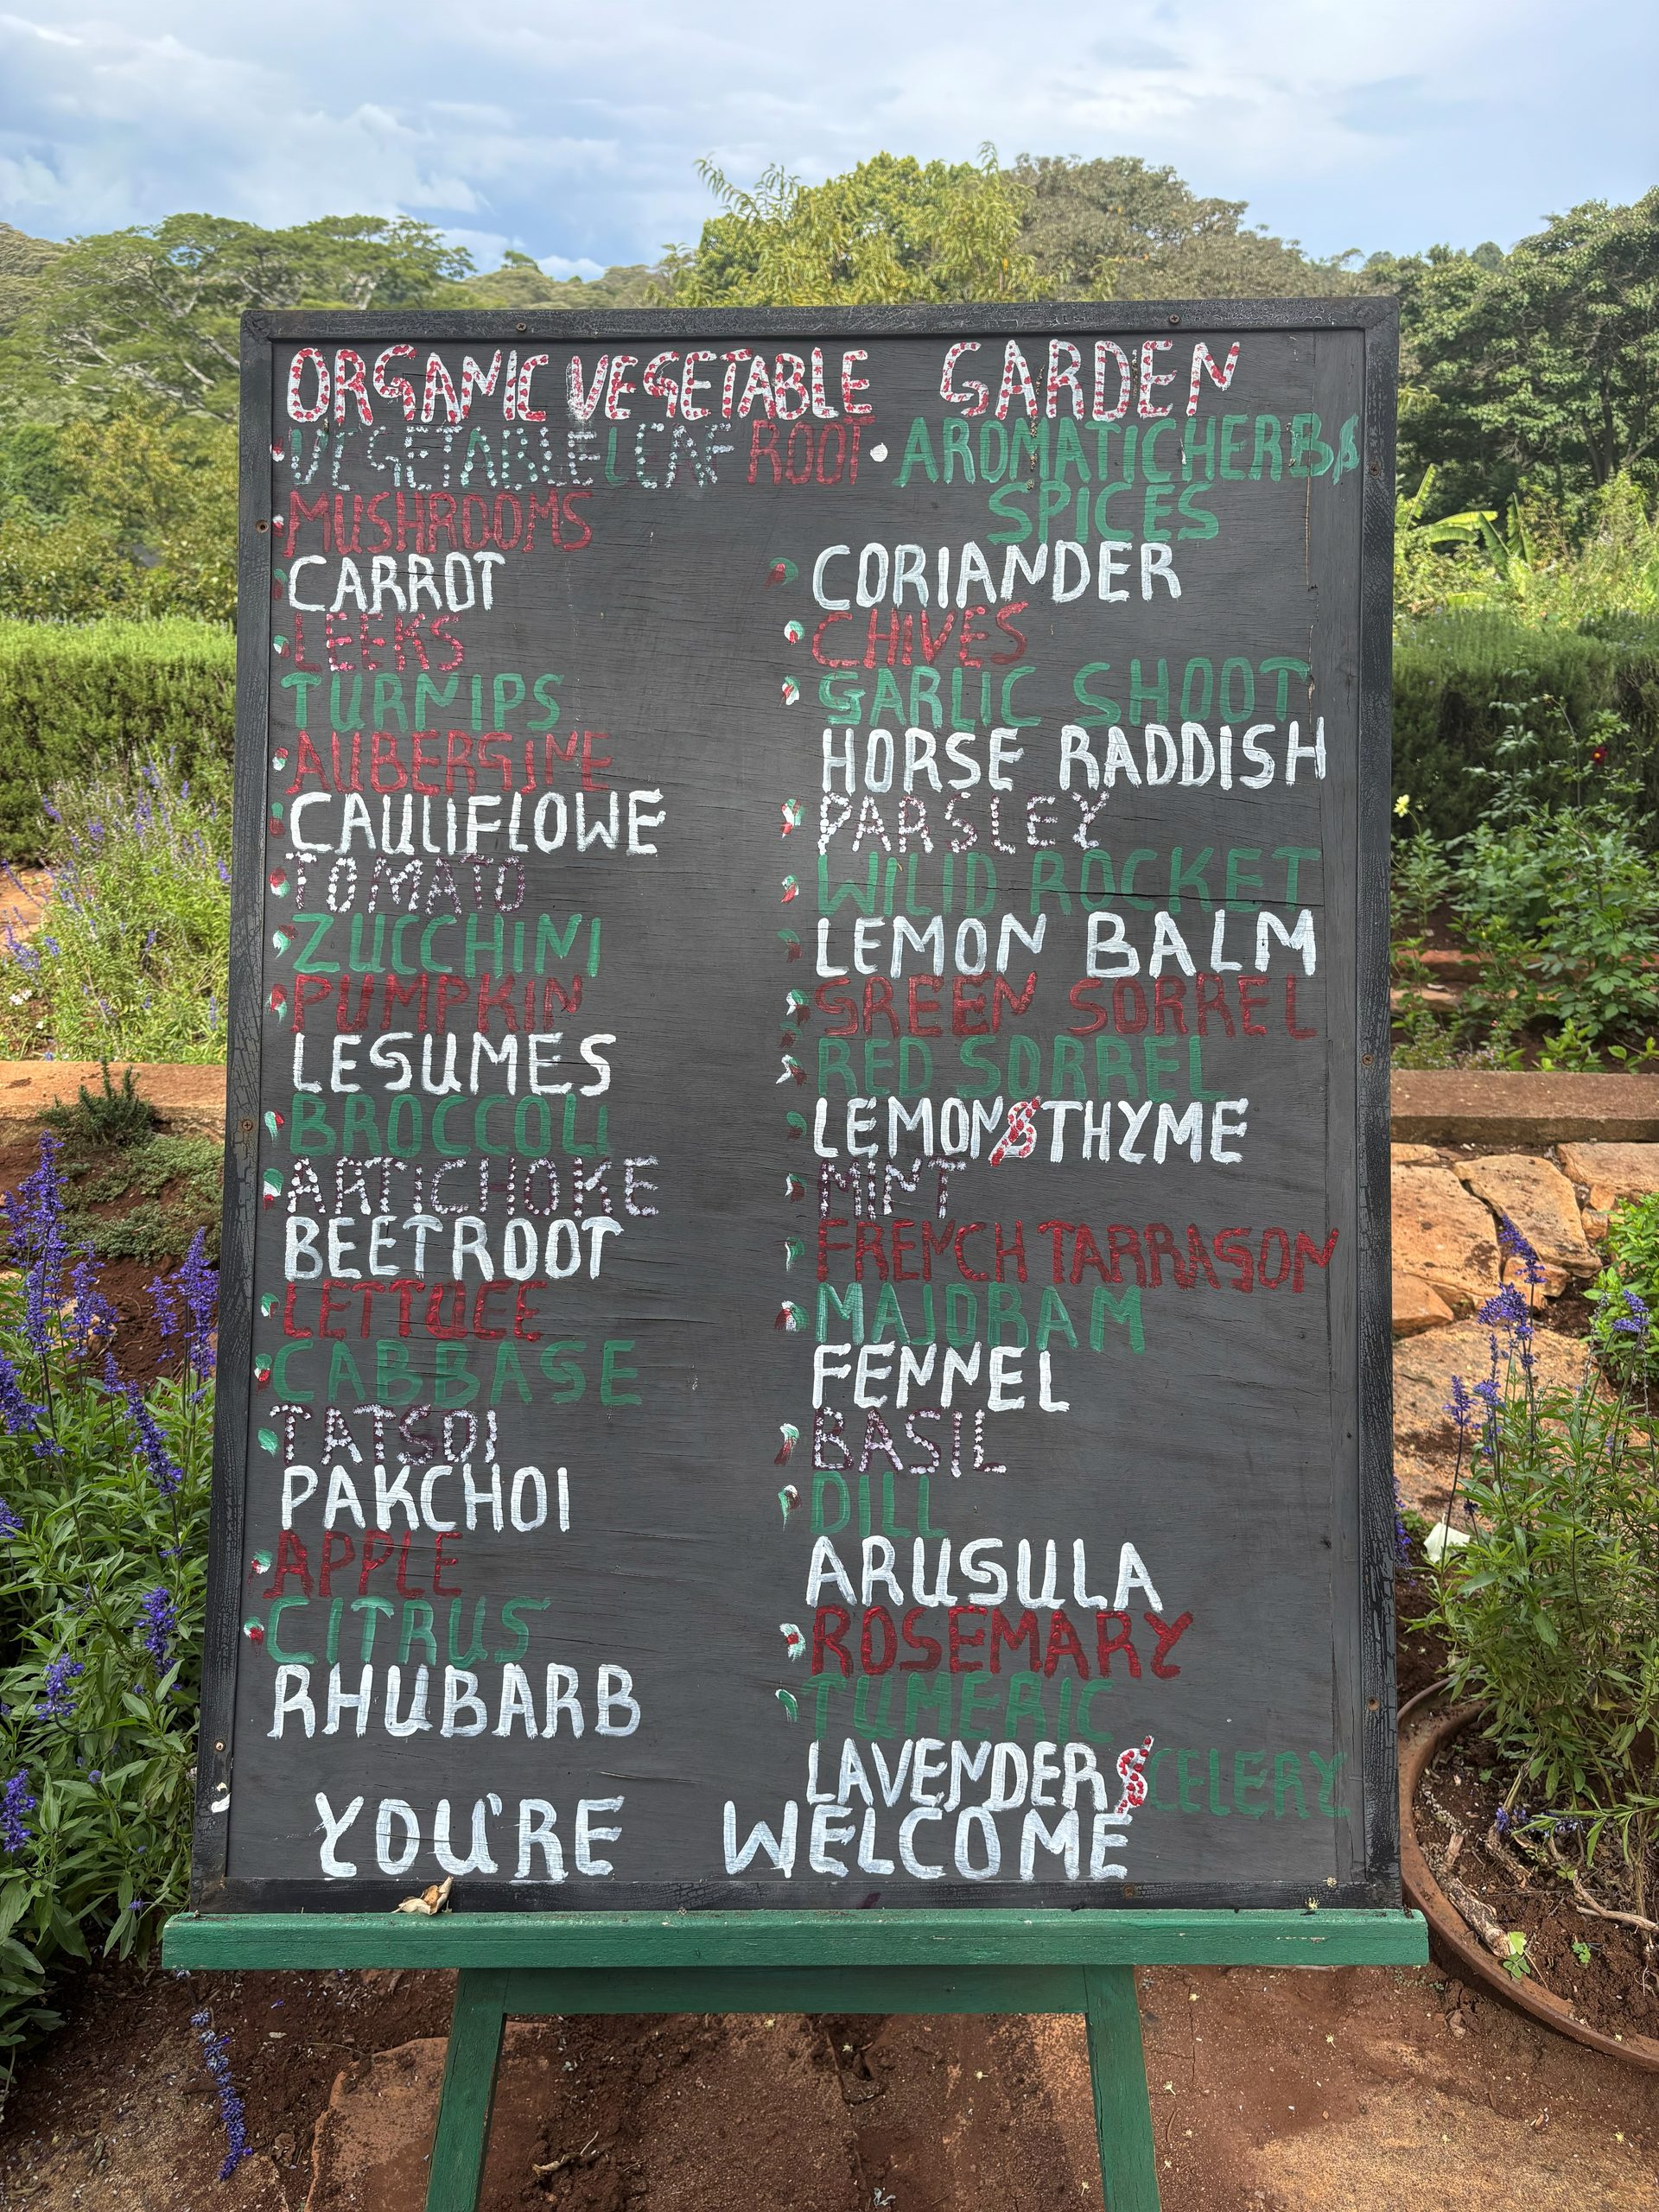 ORGANIC VEGETABLE GARDEN
VEGETABLE LEAF ROOT • AROMATIC HERB &
SPICES
MUSHROOMS
CARROT
LEEKS
TURNIPS
AUBERGINE
CAULIFLOWE
TOMATO
ZUCCHINI
PUMPKIN
LEGUMES
BROCCOLI
ARTICHOKE
BEETROOT
LETTUCE
CABBAGE
TATSOI
PAKCHOI
APPLE
CITRUS
RHUBARB
CORIANDER
CHIVES
GARLIC SHOOT
HORSE RADDISH
PARSLEY
WILID ROCKET
LEMON BALM
GREEN SORREL
RED SORREL
LEMON & THYME
MINT
FRENCH TARRAGON
MAJORAM
FENNEL
BASIL
DILL
ARUGULA
ROSEMARY
TUMERIC
LAVENDER & CELERY
YOU'RE WELCOME